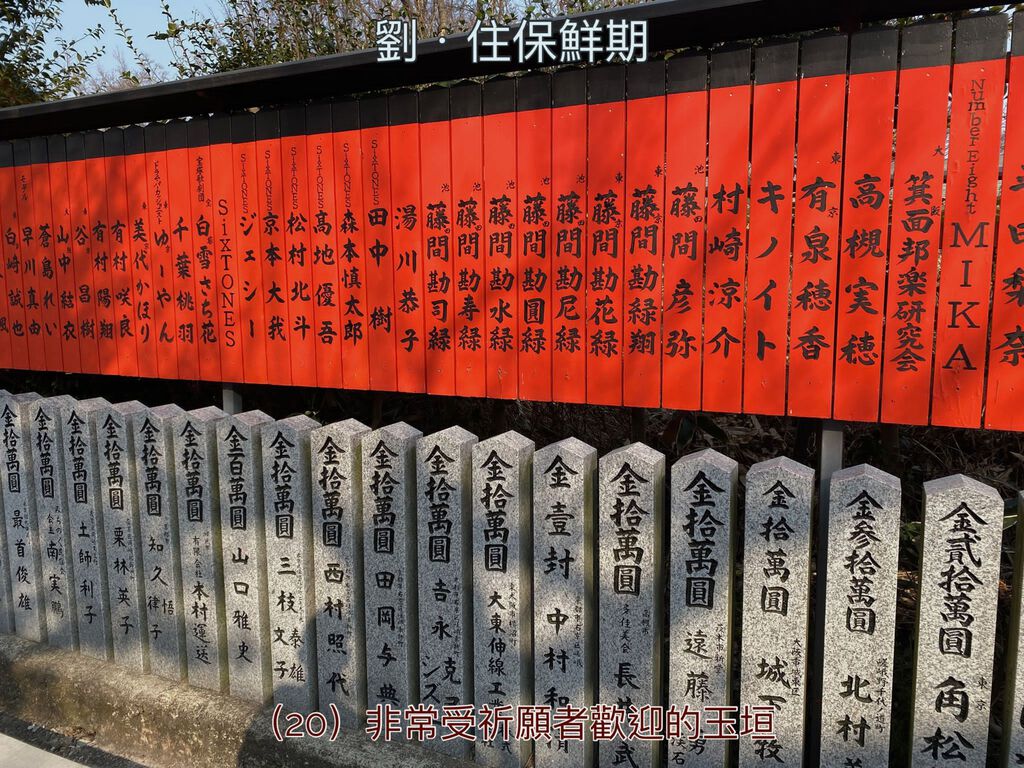 劉．住保鮮期
平田梨奈
Number Eight MIKA
箕面邦楽研究会
高槻実穂
有泉穂香
キノイト
村崎涼介
藤間彦弥
藤間勘緑翔
藤間勘花緑
藤間勘尼緑
藤間勘圓緑
藤間勘水緑
藤間勘寿緑
藤間勘司緑
湯川恭子
SixTONES 田中樹
SixTONES 森本慎太郎
SixTONES 髙地優吾
SixTONES 松村北斗
SixTONES 京本大我
SixTONES ジェシー
SixTONES
宝塚歌劇団 白雪さち花
千葉桃羽
ゆーやん
美代かほり
有村咲良
有村陽翔
谷昌樹
山中結衣
蒼島れい
早川真由
モデル 白崎誠也
金貳拾萬圓 東京 角松
金参拾萬圓 北村
金拾萬圓 城下
金拾萬圓 遠藤
金拾萬圓 長井 武
金壹封 中村和清
金拾萬圓 大東伸線工業
金拾萬圓 吉永
金拾萬圓 田岡与典
金拾萬圓 西村照代
金拾萬圓 三枝 泰雄 文子
金百萬圓 山口雅史
金拾萬圓 有限会社 本村運送
金拾萬圓 知久 悟 律子
金拾萬圓 栗林英子
金拾萬圓 土師利子
金拾萬圓 南実鵬
金拾萬圓 最首俊雄
（20）非常受祈願者歡迎的玉垣